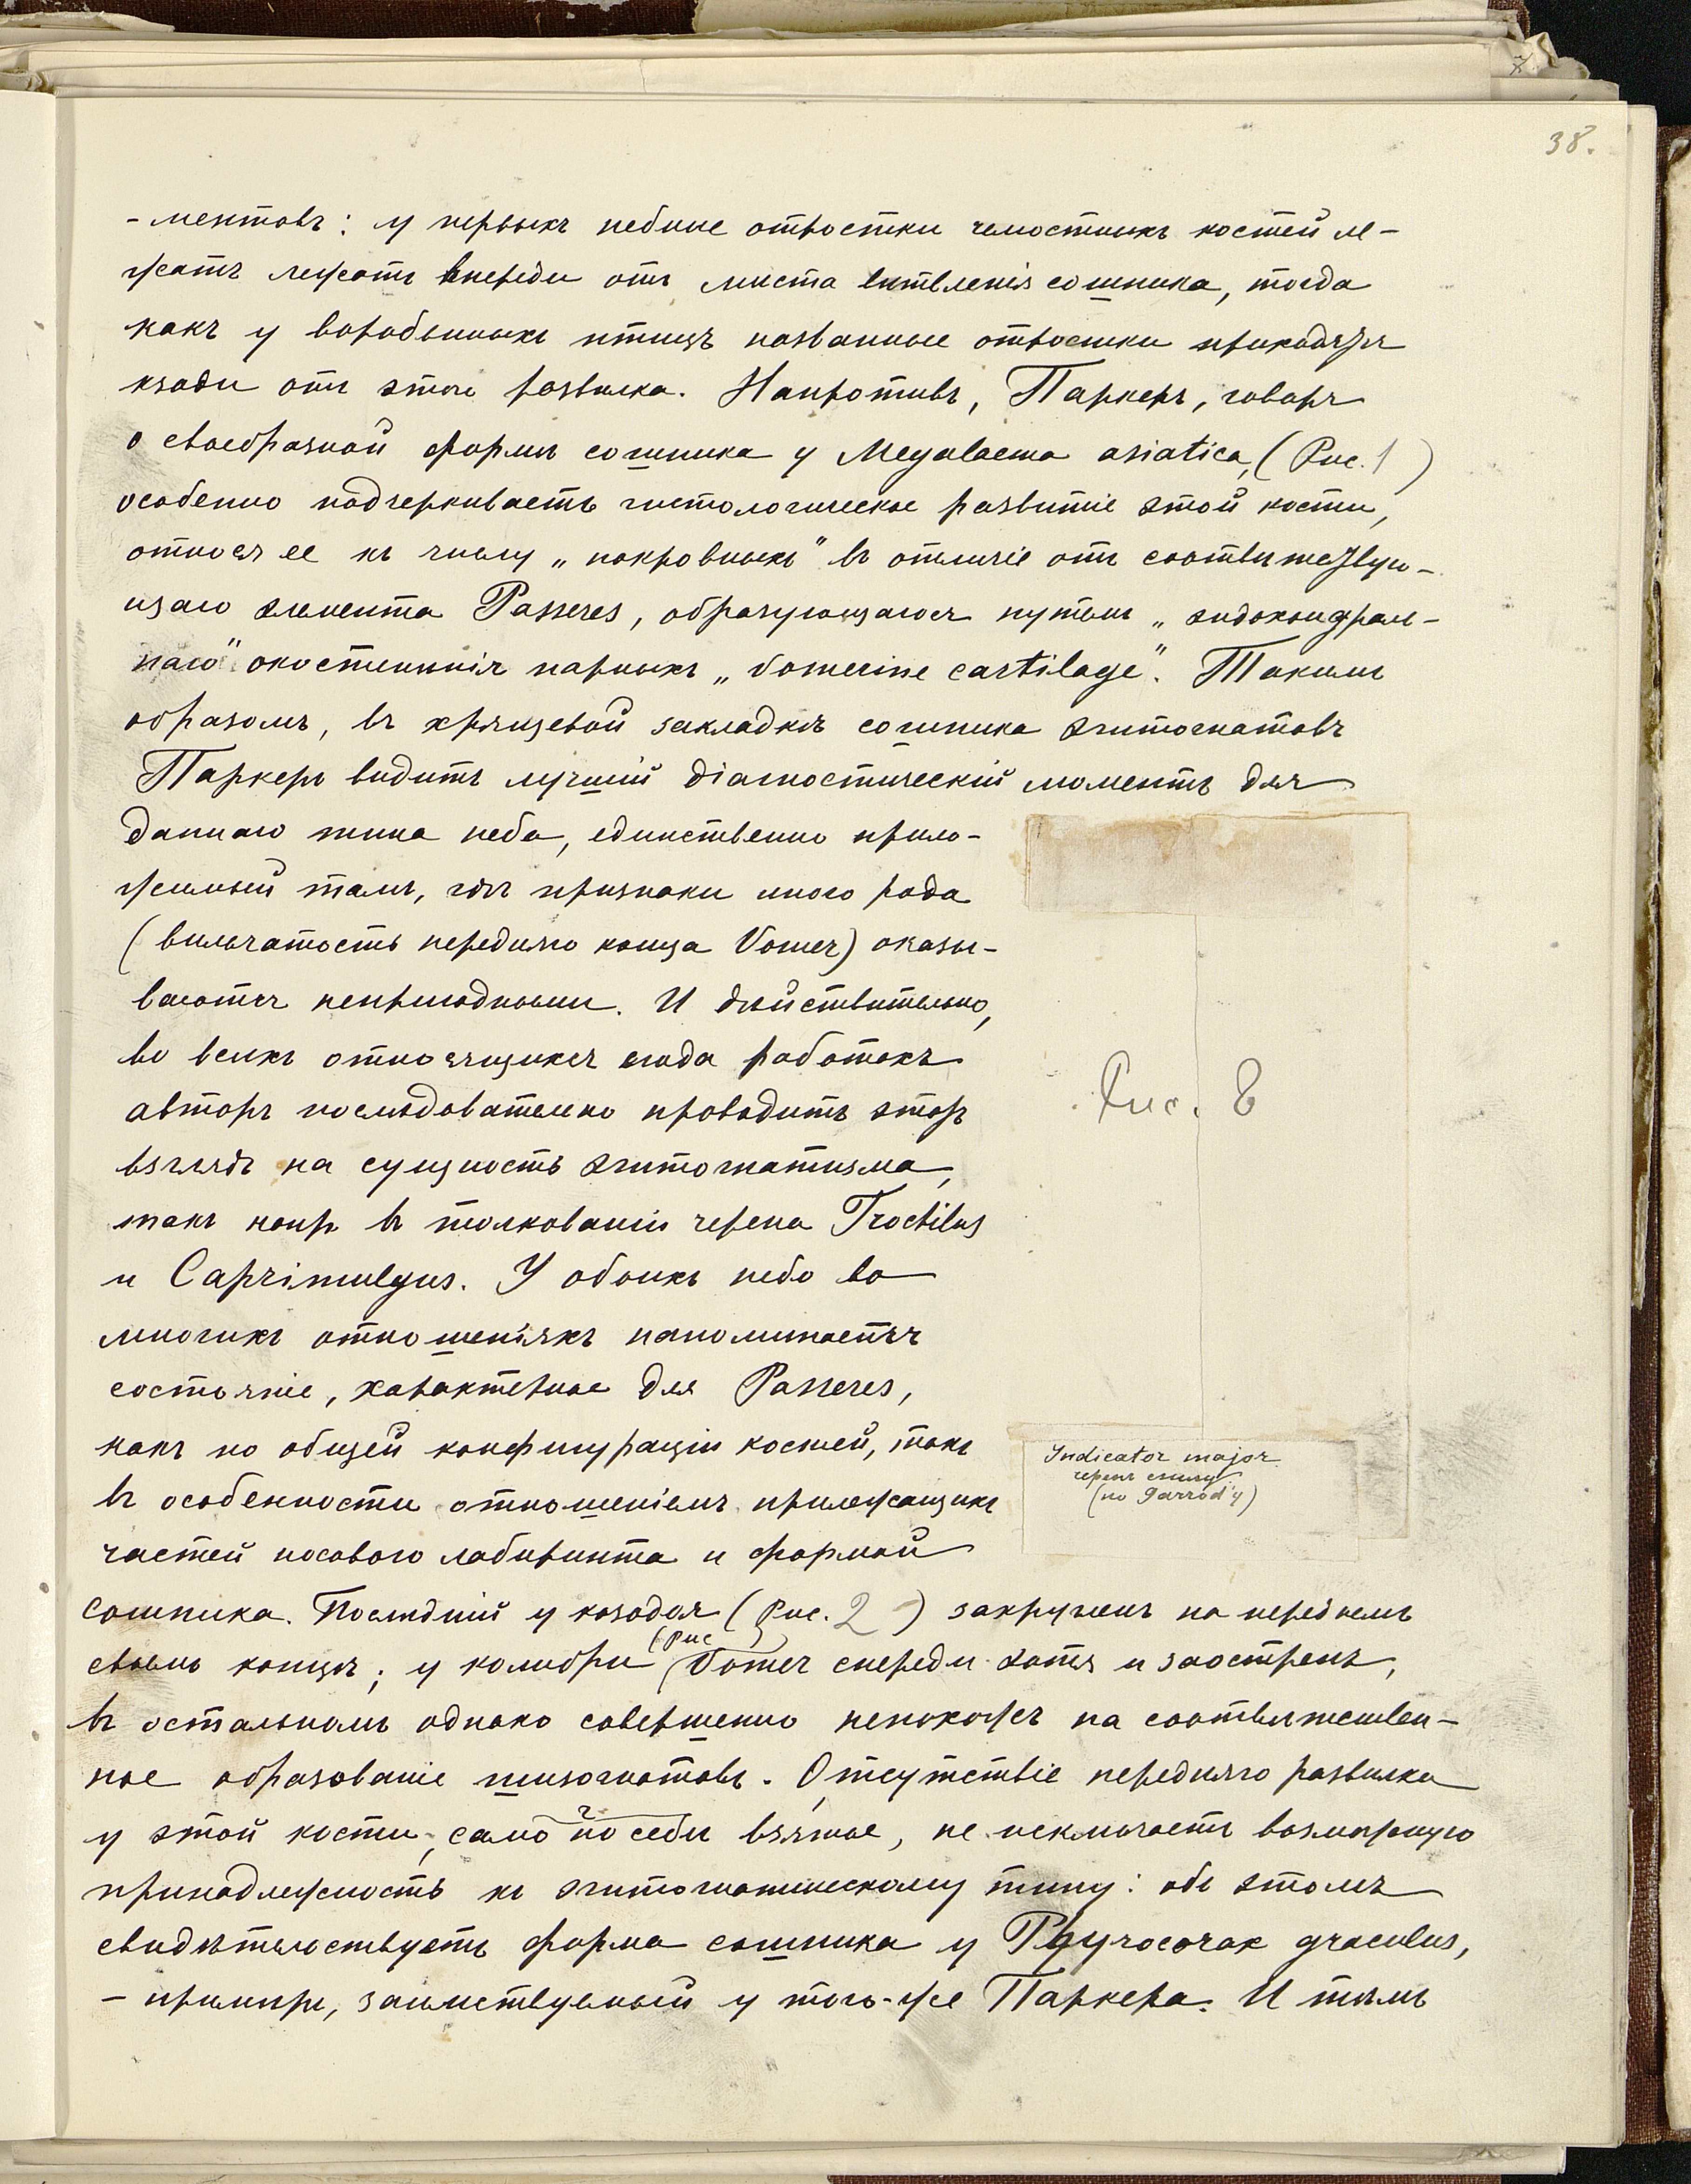 38.
-ментовъ: у первыхъ небные отростки челюстныхъ костей ле-
жатъ лежатъ впереди отъ мѣста вѣтвленія сошника, тогда
какъ у воробьиныхъ птицъ названные отростки приходятся
кзади отъ этого развилка. Напротивъ, Паркеръ, говоря
о своеобразной формѣ сошника у Megalaema asiatica, (Рис. 1)
особенно подчеркиваетъ гистологическое развитіе этой кости,
относя ее къ числу „покровныхъ" въ отличіе отъ соотвѣтствую-
щаго элемента Passeres, образующагося путемъ „эндохондраль-
наго" окостенѣнія парныхъ „vomerine cartilage". Такимъ
образомъ, въ хрящевой закладкѣ сошника эгитогнатовъ
Паркеръ видитъ лучшій діагностическій моментъ для
даннаго типа неба, единственно прило-
жимый тамъ, гдѣ признаки иного рода
(вильчатость передняго конца Vomer) оказы-
ваются непригодными. И дѣйствительно,
во всѣхъ относящихся сюда работахъ
авторъ послѣдовательно проводитъ этотъ
взглядъ на сущность эгитогнатизма,
такъ напр въ толкованіи черепа Trochilus
и Caprimulgus. У обоихъ небо во
многихъ отношеніяхъ напоминаетъ
состояніе, характерное для Passeres,
какъ по общей конфигураціи костей, такъ
въ особенности отношеніемъ прилежащихъ
частей носового лабиринта и формой
сошника. Послѣдній у козодоя (Рис. 2) закругленъ на переднемъ
своемъ концѣ; у колибри (Рис 3) Vomer спереди хотя и заостренъ,
въ остальномъ однако совершенно непохожъ на соотвѣтствен-
ное образованіе шизогнатовъ. Отсутствіе передняго развилка
у этой кости, само по себѣ взятое, не исключаетъ возможную
принадлежность къ эгитогнатическому типу: объ этомъ
свидѣтельствуетъ форма сошника у Phyrocorax graculus,
- примѣръ, заимствуемый у того-же Паркера. И тѣмъ
Рис. 8
Indicator major
черепъ снизу
(по Garrod'у)